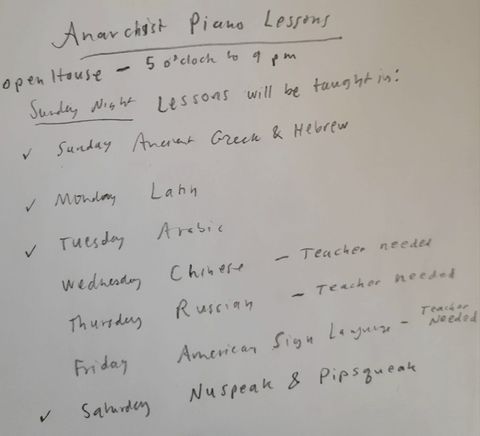 Anarchist Piano Lessons
open House - 5 o'clock to 9 pm
Sunday Night Lessons will be taught in:
✓ Sunday Ancient Greek & Hebrew
✓ Monday Latin
✓ Tuesday Arabic
Wednesday Chinese - Teacher needed
Thursday Russian - Teacher needed
Friday American Sign Language - Teacher Needed
✓ Saturday Nuspeak & Pipsqueak